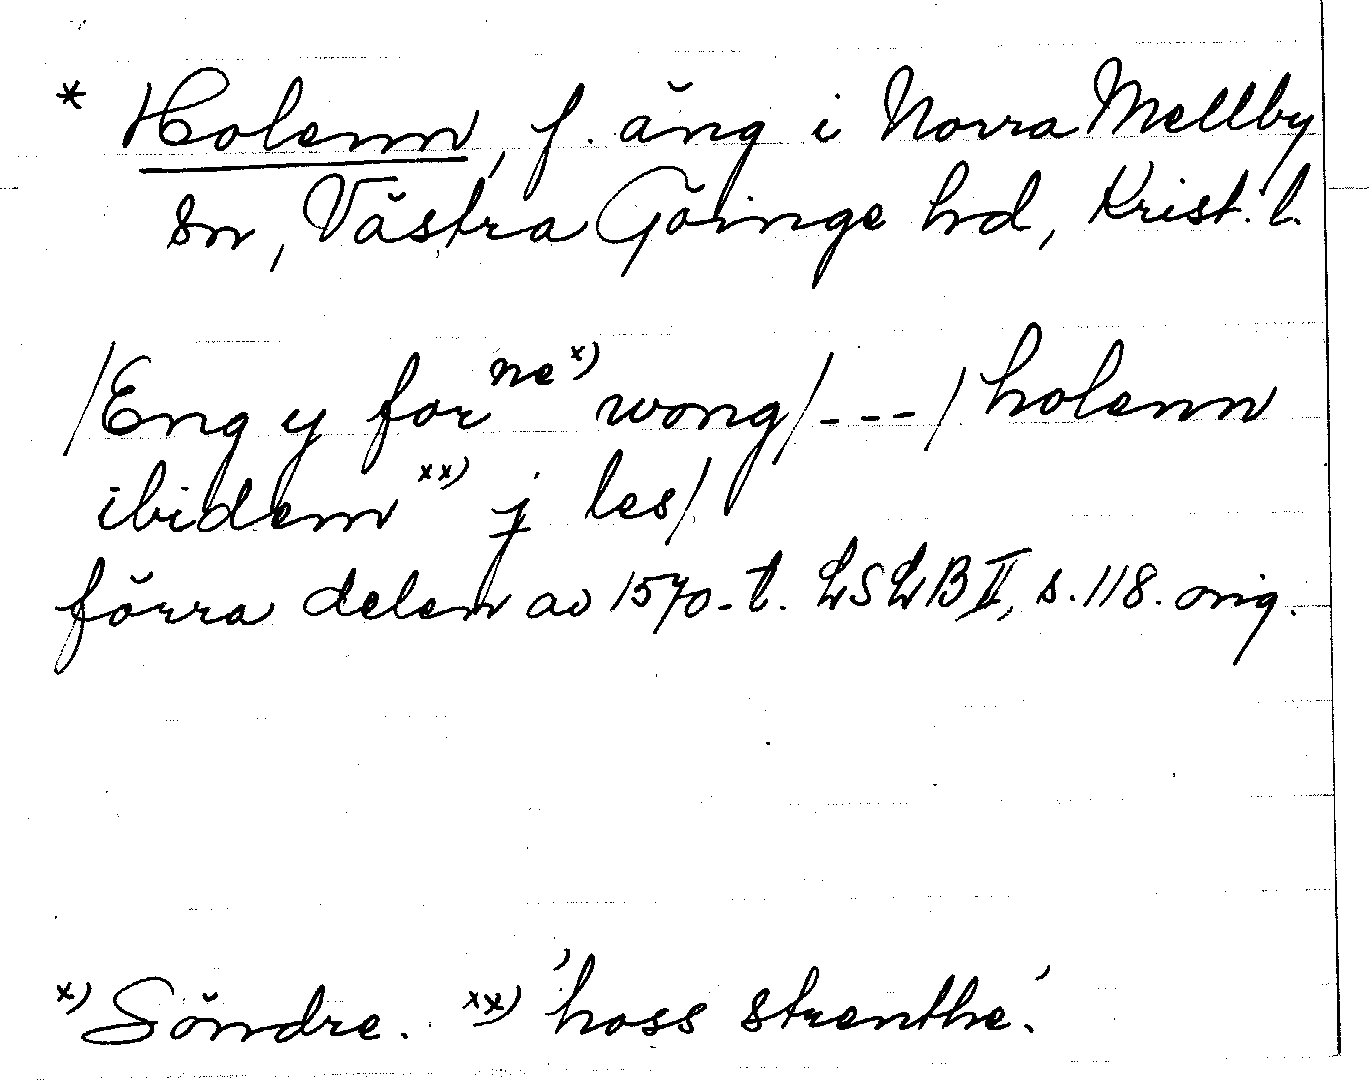 * Holenn, f. äng i Norra Mellby
sn, Västra Göinge hd, Krist. l.
/Eng y for ne x) wong/---/holenn
ibidem xx) j les/
förra delen av 1570-t. LSLB II, s. 118. orig.
x) Söndre. xx) 'hoss strenthe'.